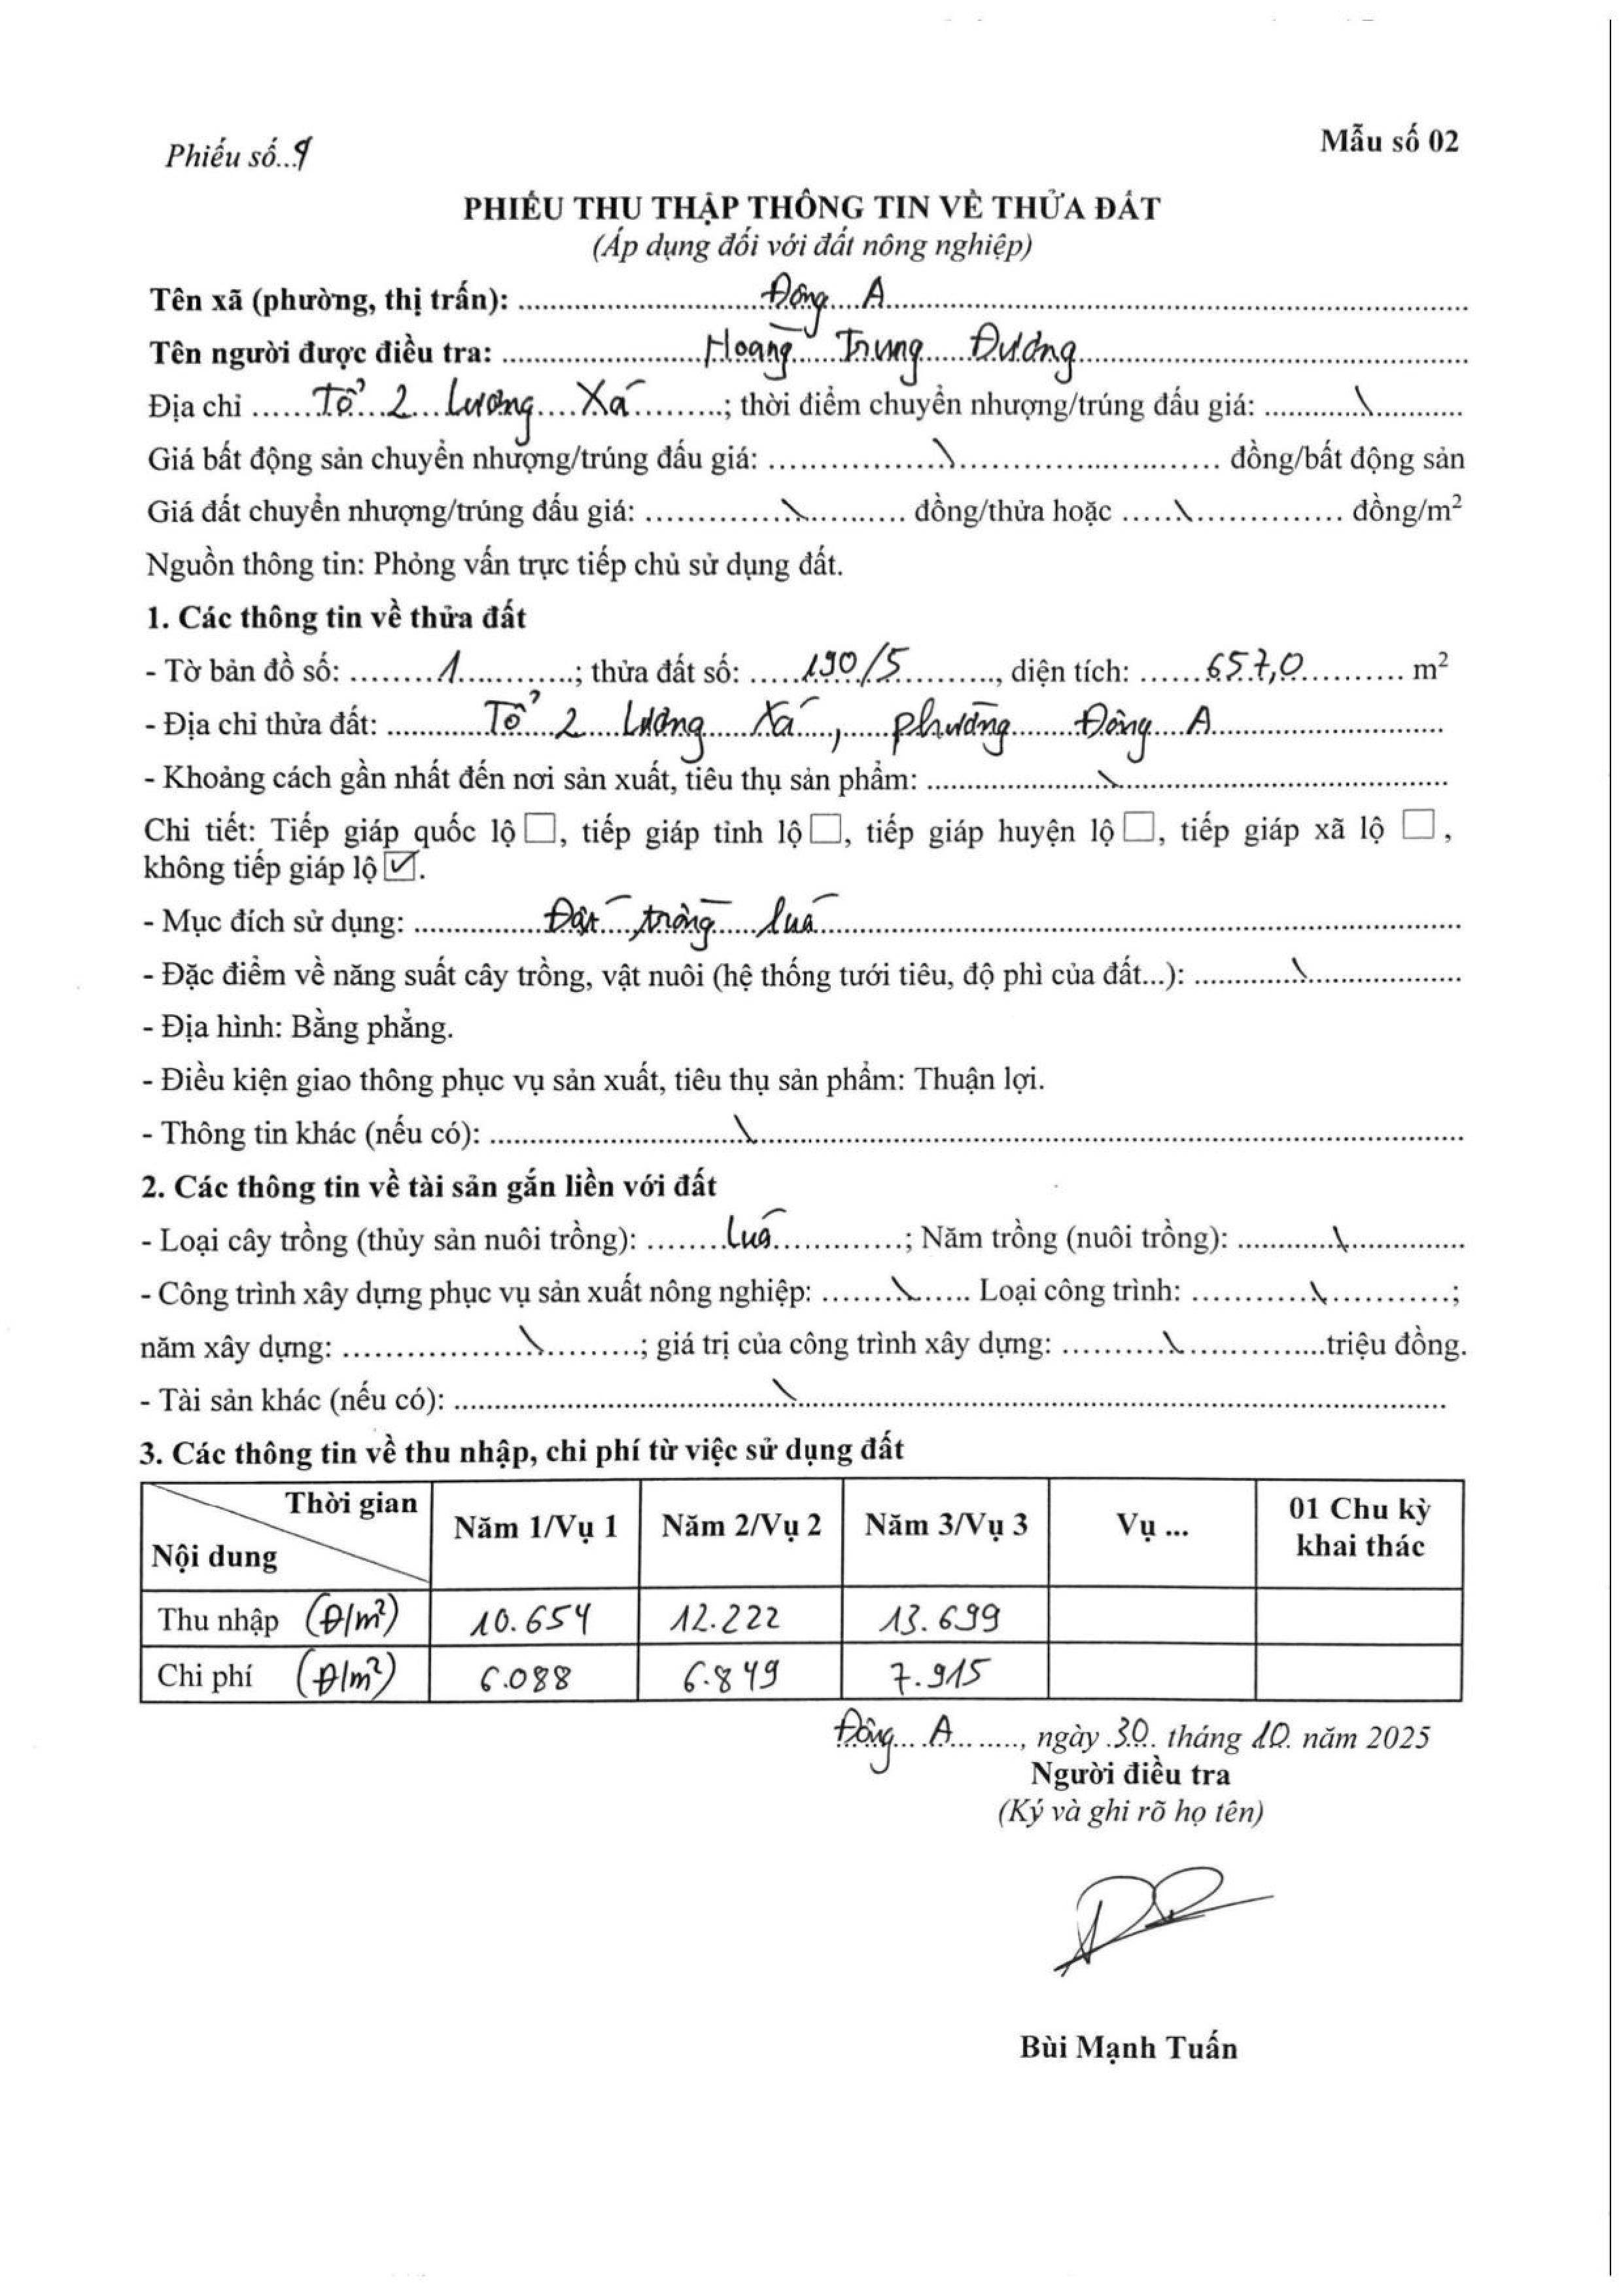 Phiếu số...9
Mẫu số 02
PHIẾU THU THẬP THÔNG TIN VỀ THỬA ĐẤT
(Áp dụng đối với đất nông nghiệp)
Tên xã (phường, thị trấn): Đông A
Tên người được điều tra: Hoàng Trung Đương
Địa chỉ Tổ 2 Lương Xá; thời điểm chuyển nhượng/trúng đấu giá: \
Giá bất động sản chuyển nhượng/trúng đấu giá: \ đồng/bất động sản
Giá đất chuyển nhượng/trúng đấu giá: \ đồng/thửa hoặc \ đồng/m²
Nguồn thông tin: Phỏng vấn trực tiếp chủ sử dụng đất.
1. Các thông tin về thửa đất
- Tờ bản đồ số: 1; thửa đất số: 190/5, diện tích: 657,0 m²
- Địa chỉ thửa đất: Tổ 2 Lương Xá, phường Đông A
- Khoảng cách gần nhất đến nơi sản xuất, tiêu thụ sản phẩm: \
Chi tiết: Tiếp giáp quốc lộ ☐, tiếp giáp tỉnh lộ ☐, tiếp giáp huyện lộ ☐, tiếp giáp xã lộ ☐,
không tiếp giáp lộ ☑.
- Mục đích sử dụng: Đất trồng lúa
- Đặc điểm về năng suất cây trồng, vật nuôi (hệ thống tưới tiêu, độ phì của đất...): \
- Địa hình: Bằng phẳng.
- Điều kiện giao thông phục vụ sản xuất, tiêu thụ sản phẩm: Thuận lợi.
- Thông tin khác (nếu có): \
2. Các thông tin về tài sản gắn liền với đất
- Loại cây trồng (thủy sản nuôi trồng): Lúa; Năm trồng (nuôi trồng): \
- Công trình xây dựng phục vụ sản xuất nông nghiệp: \ Loại công trình: \;
năm xây dựng: \; giá trị của công trình xây dựng: \ triệu đồng.
- Tài sản khác (nếu có): \
3. Các thông tin về thu nhập, chi phí từ việc sử dụng đất
Thời gian
Nội dung
Năm 1/Vụ 1 Năm 2/Vụ 2 Năm 3/Vụ 3 Vụ ... 01 Chu kỳ
khai thác
Thu nhập (Đ/m²) 10.654 12.222 13.699
Chi phí (Đ/m²) 6.088 6.849 7.915
Đông A, ngày 30 tháng 10 năm 2025
Người điều tra
(Ký và ghi rõ họ tên)
Bùi Mạnh Tuấn